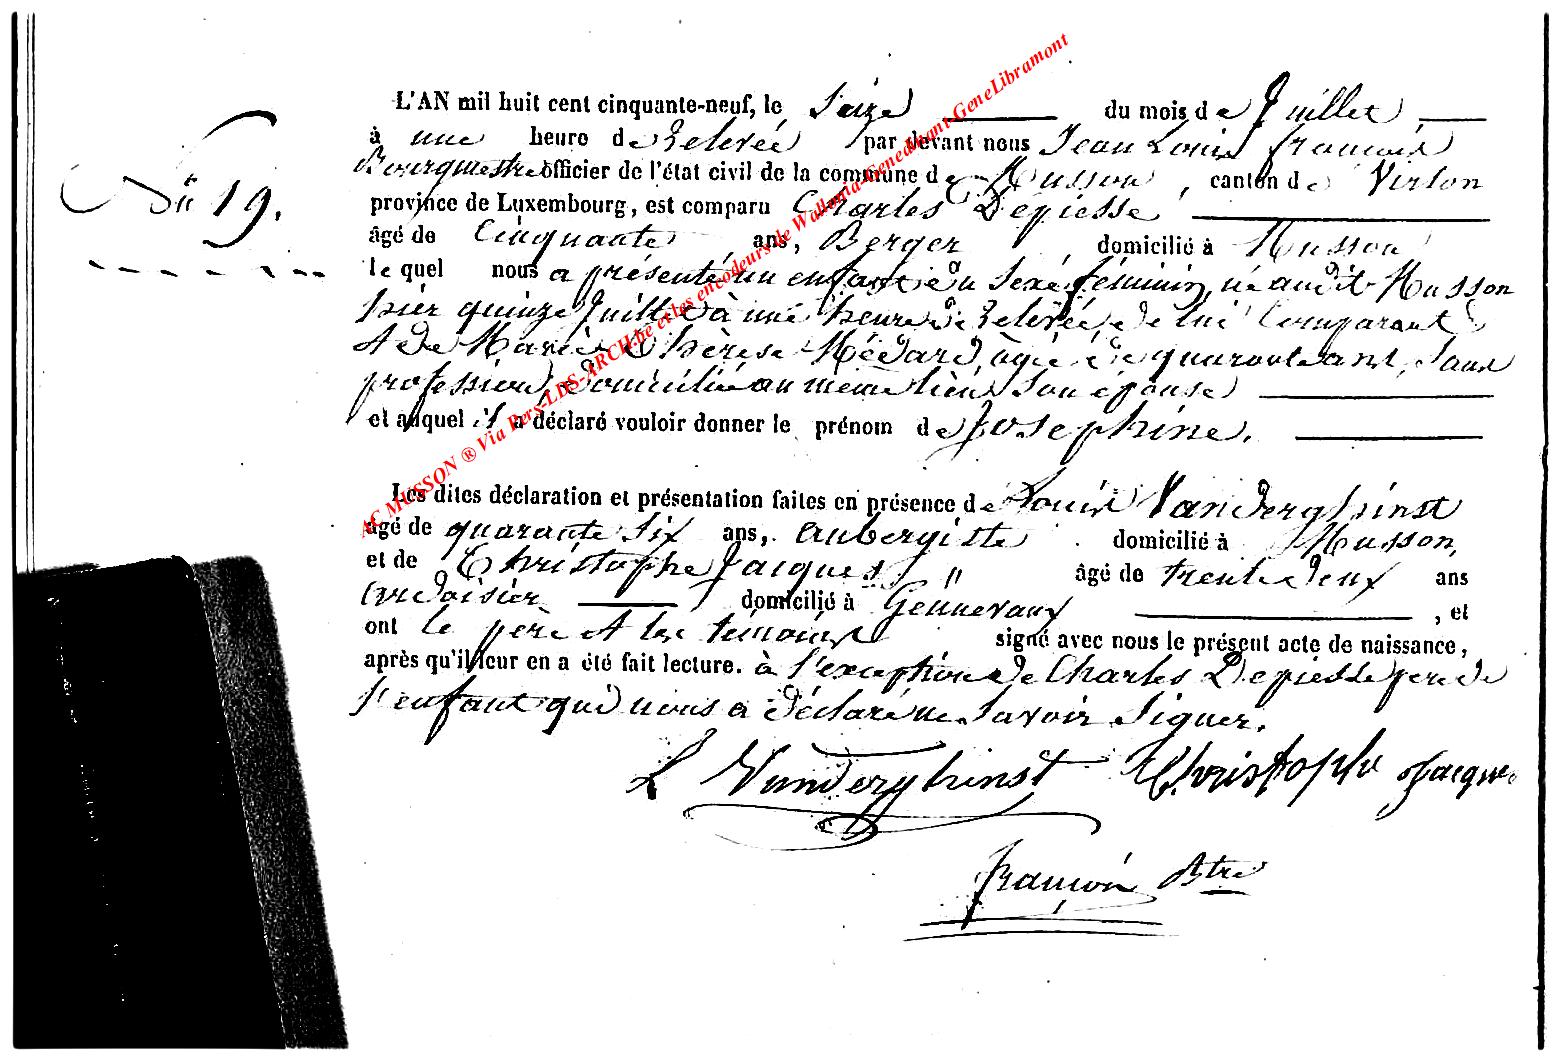 L'AN mil huit cent cinquante-neuf, le Seize du mois de Juillet
à une heure de Relevée par devant nous Jean Louis françois
Bourgmestre officier de l'état civil de la commune de Musson, canton de Virton
No 19.
province de Luxembourg, est comparu Charles Depiesse
âgé de Cinquante ans, Berger domicilié à Musson
le quel nous a présenté un enfant du Sexe féminin, né audit Musson
hier quinze Juillet à une heure de Relevée, de lui Comparant
et de Marie Thérèse Médard, âgée de quarante ans, Sans
profession, domiciliée au même lieu, Son épouse
et auquel il a déclaré vouloir donner le prénom de Josephine.
Les dites déclaration et présentation faites en présence de Louis Vanderghinst
âgé de quarante Six ans, aubergiste domicilié à Musson,
et de Christophe Jacques " âgé de trente deux ans
ardoisier domicilié à Gennevaux , et
ont le père et les témoins signé avec nous le présent acte de naissance,
après qu'il leur en a été fait lecture. à l'exception de Charles Depiesse pere de
l'enfant qui nous a déclaré ne Savoir Signer.
L Vanderghinst Christophe Jacques
françois Btre
AC MUSSON ® Via Pers-LDS-ARCH.be et les encodeurs de Wallonia-Genealnat-GeneLibramont